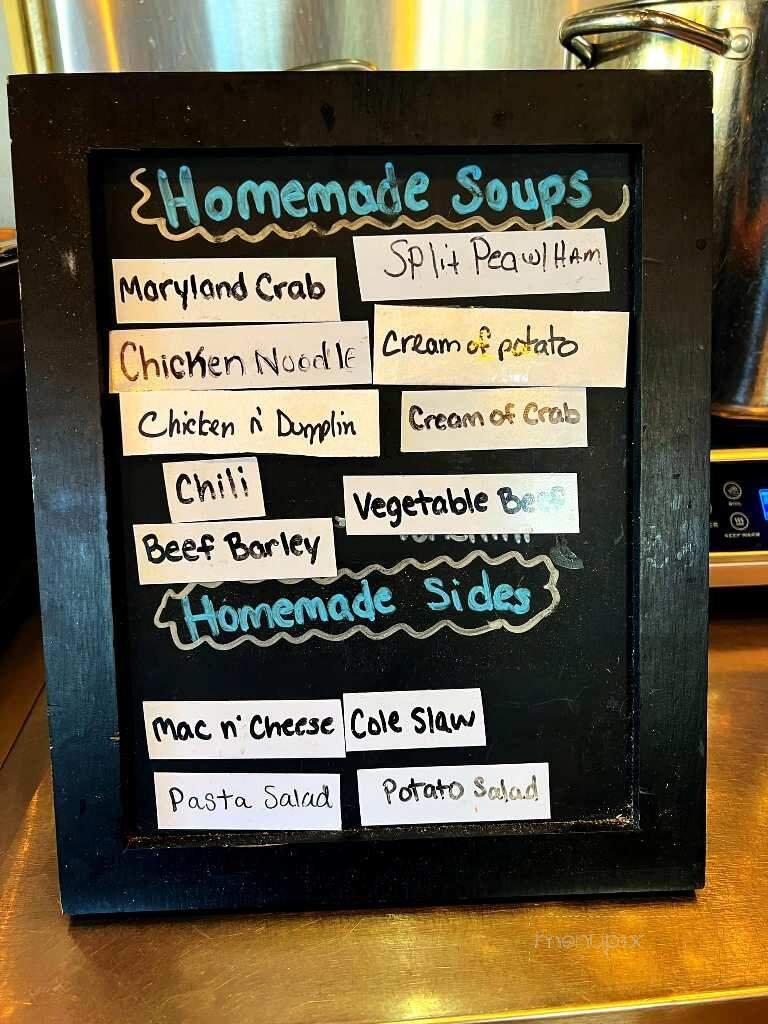 Homemade Soups
Maryland Crab
Split Pea w/ Ham
Chicken Noodle
Cream of potato
Chicken n' Dumplin
Cream of Crab
Chili
Vegetable Beef
Beef Barley
Homemade Sides
Mac n' Cheese
Cole Slaw
Pasta Salad
Potato Salad
KEEP WARM
menupix